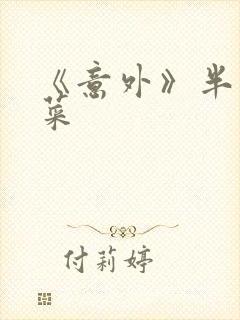 《意外》半
菜
付莉婷